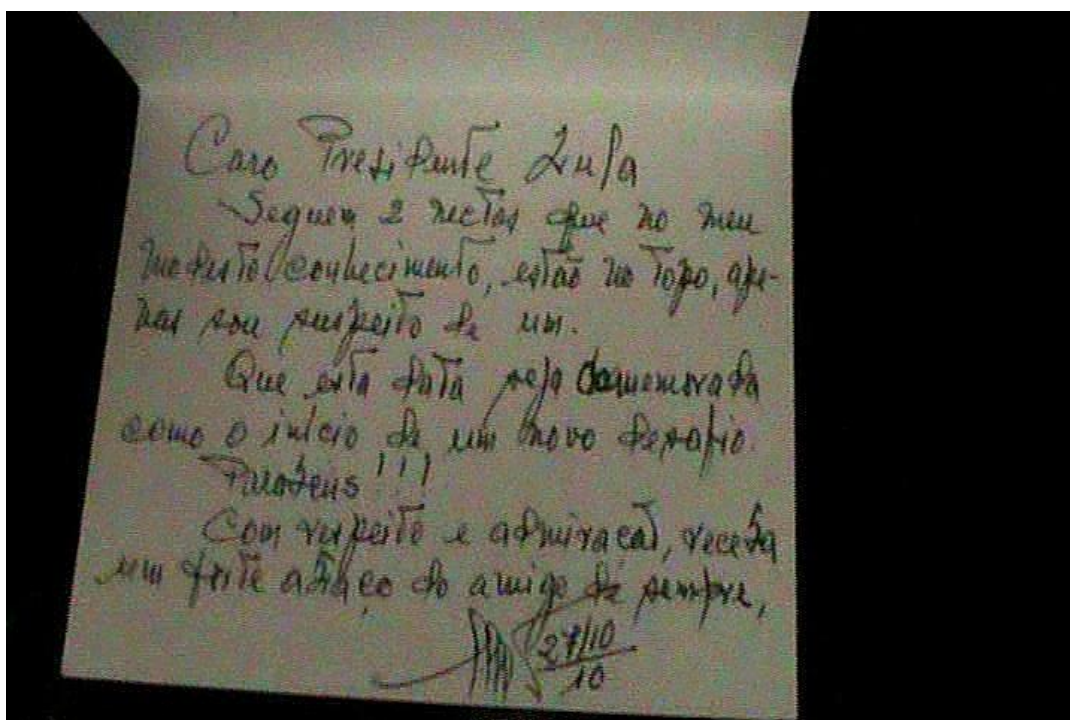 Caro Presidente Lula
Seguem 2 nectas que no meu
modesto conhecimento, estão no topo, ape-
nas sou suspeito de um.
Que esta data seja comemorada
como o início de um novo desafio.
Parabéns!!!
Com respeito e admiração, receba
um forte abraço do amigo de sempre,
27/10
10